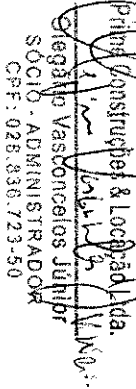 Prime Construções & Locação Ltda.
Olegário Vasconcelos Júnior
SÓCIO - ADMINISTRADOR
CPF: 026.836.723-50